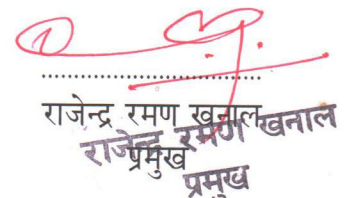 ......................................
राजेन्द्र रमण खनाल
प्रमुख
राजेन्द्र रमण खनाल
प्रमुख